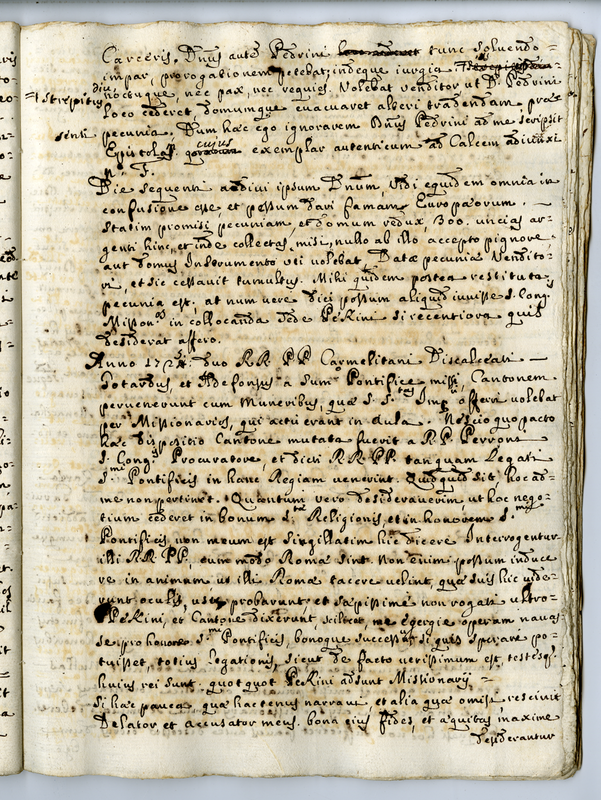 Carceris. Dnus autē Pedrini tunc solvendo
impar, prorogationem petebat; indeque iurgia
strepitus diu noctuque, nec pax, nec requies. Volebat venditor ut D. Pedrini
loco cederet, domumque evacuaret alteri tradendam, præ
senti pecunia. Dum hæc ego ignorarem Dnus Pedrini ad me scripsit
Epistolā, cujus exemplar autenticum ad Calcem adiunxi
n. F.
Die sequenti audivi ipsum Dnum. Vidi equidem omnia in
confusione esse, et pessum dari famam Europæorum.
Statim promisi pecuniam, et domum redux, 300. uncias ar-
genti hinc, et inde collectas misi, nullo ab illo accepto pignore,
aut domus Instrumento uti volebat. Datæ pecuniæ Vendito-
ri, et sic cessavit tumultus. Mihi quidem postea restituta
pecunia est; at num vere dici possum aliquid iuvisse S. Congis
Missionos in collocanda sede Pekini si recentiora quis
desiderat affero.
Anno 172 duo RR PP Carmelitani Discalceati
Gotardus et Ildefonsus a Summo Pontifice missi, Cantonem
pervenerunt cum Muneribus, quæ S. Stas Impri offerri volebat
per Missionarios, qui actu erant in Aula. Nescio quo pacto
hæc dispositio Cantone mutata fuerit a R. P. Perrone
S. Congis Procuratore, et dicti RR. PP. tanquam Legati
Smi Pontificis in hanc Regiam venerint. Quidquid sit, hoc ad
me non pertinet. Quantum vero desideraverim, ut hoc nego-
tium cederet in bonum Stæ Religionis, et in honorem Smi
Pontificis non meum est singillatim hic dicere. Interrogentur
illi RR PP, cum modo Romæ sint. Non enim possum induce
re in animam ut illi Romæ tacere velint, quæ suis hic vide-
runt oculis, usu probarunt, et sæpissime non rogati ultro
Pekini, et Cantone dixerunt, scilicet, me egregie operam navas
se pro honore Smi Pontificis, bonoque successu, si quis sperare po-
tuisset, totius legationis, sicut de facto verissimum est, testesq;
huius rei sunt quotquot Pekini adsunt Missionarij
Si hæc pauca, quæ hactenus narravi, et alia quæ omisi rescivit
Delator et accusator meus. bona eius fides, et æquitas maxime
desiderantur